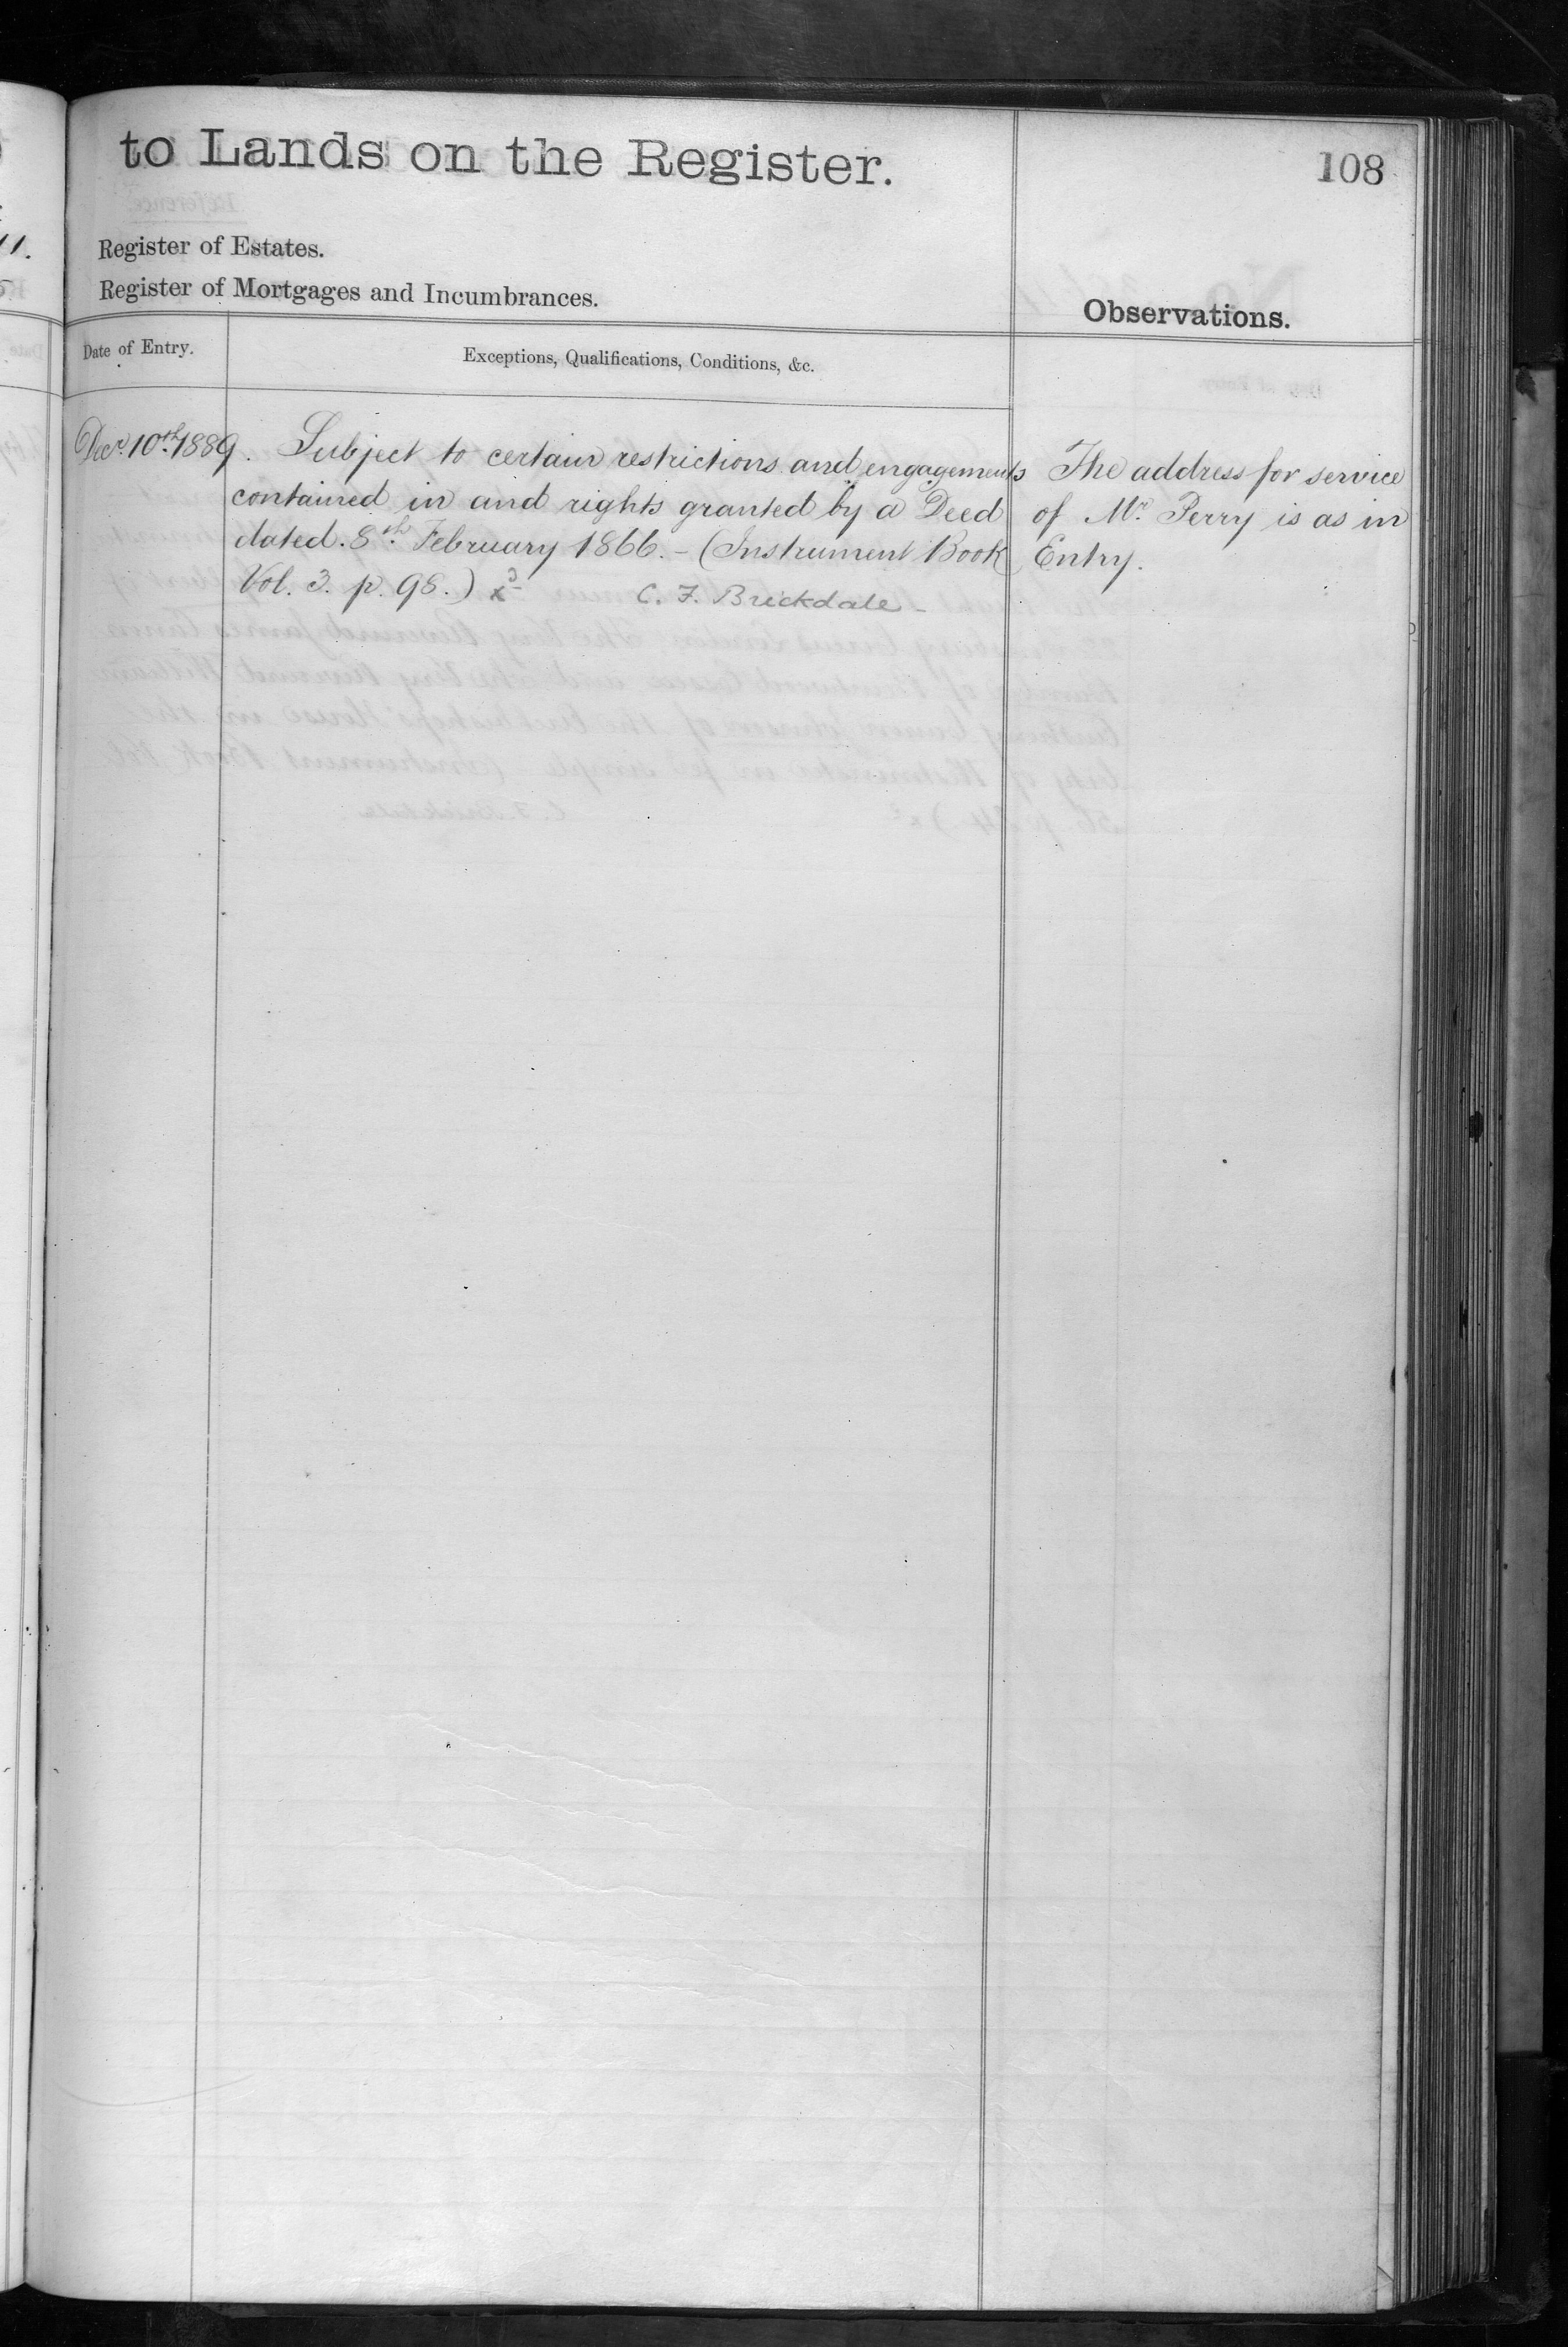 to Lands on the Register.
108
Register of Estates.
Register of Mortgages and Incumbrances.
Observations.
Date of Entry.
Exceptions, Qualifications, Conditions, &c.
Decr. 10th. 1889. Subject to certain restrictions and engagements
contained in and rights granted by a Deed
dated. 8th. February 1866. - (Instrument Book
Vol. 3. p. 98.)
C. F. Brickdale -
The address for service
of Mr. Perry is as in
Entry.